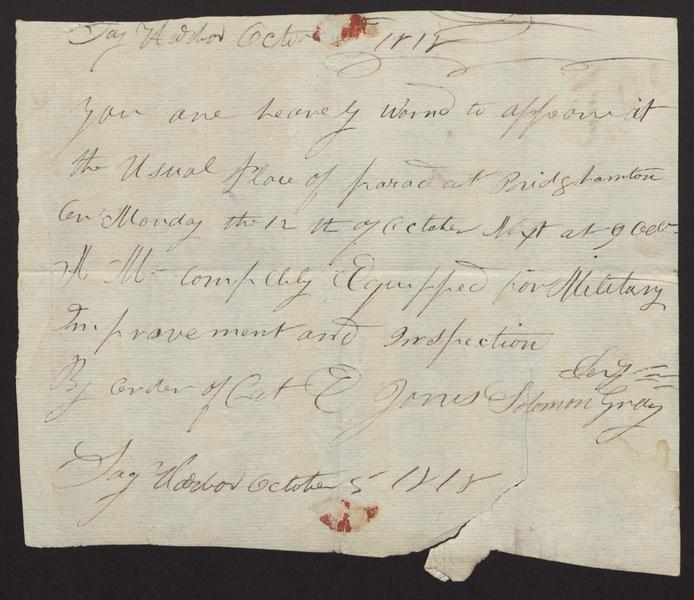 Sag Harbor October 5 1818
You are heareby warnd to appear it
the Usual Place of parad at Bridghamton
on Monday the 12 th of October Next at 9 Oclo
A M completely Equipped for Military
Improvement and Inspection
By order of Cat E Jones Solomon Gray
Serg
Sag Harbor October 5 1818